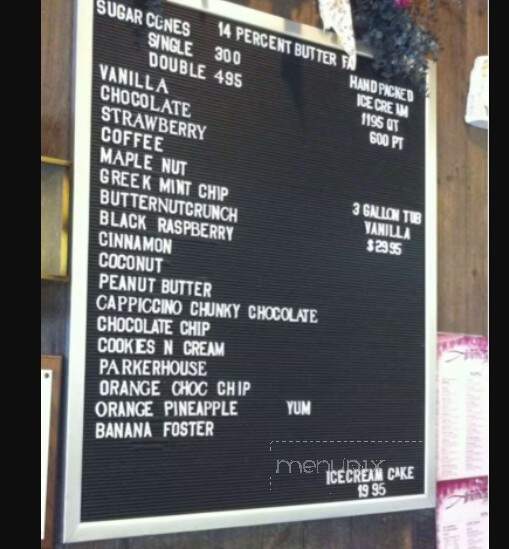 SUGAR CONES 14 PERCENT BUTTER FA
SINGLE 300
DOUBLE 495
HAND PACKED
ICE CREAM
1195 QT
600 PT
VANILLA
CHOCOLATE
STRAWBERRY
COFFEE
MAPLE NUT
GREEK MINT CHIP
BUTTERNUTCRUNCH
BLACK RASPBERRY
CINNAMON
COCONUT
PEANUT BUTTER
CAPPICCINO CHUNKY CHOCOLATE
CHOCOLATE CHIP
COOKIES N CREAM
PARKERHOUSE
ORANGE CHOC CHIP
ORANGE PINEAPPLE YUM
BANANA FOSTER
3 GALLON TUB
VANILLA
$29.95
menupix
ICECREAM CAKE
19 95